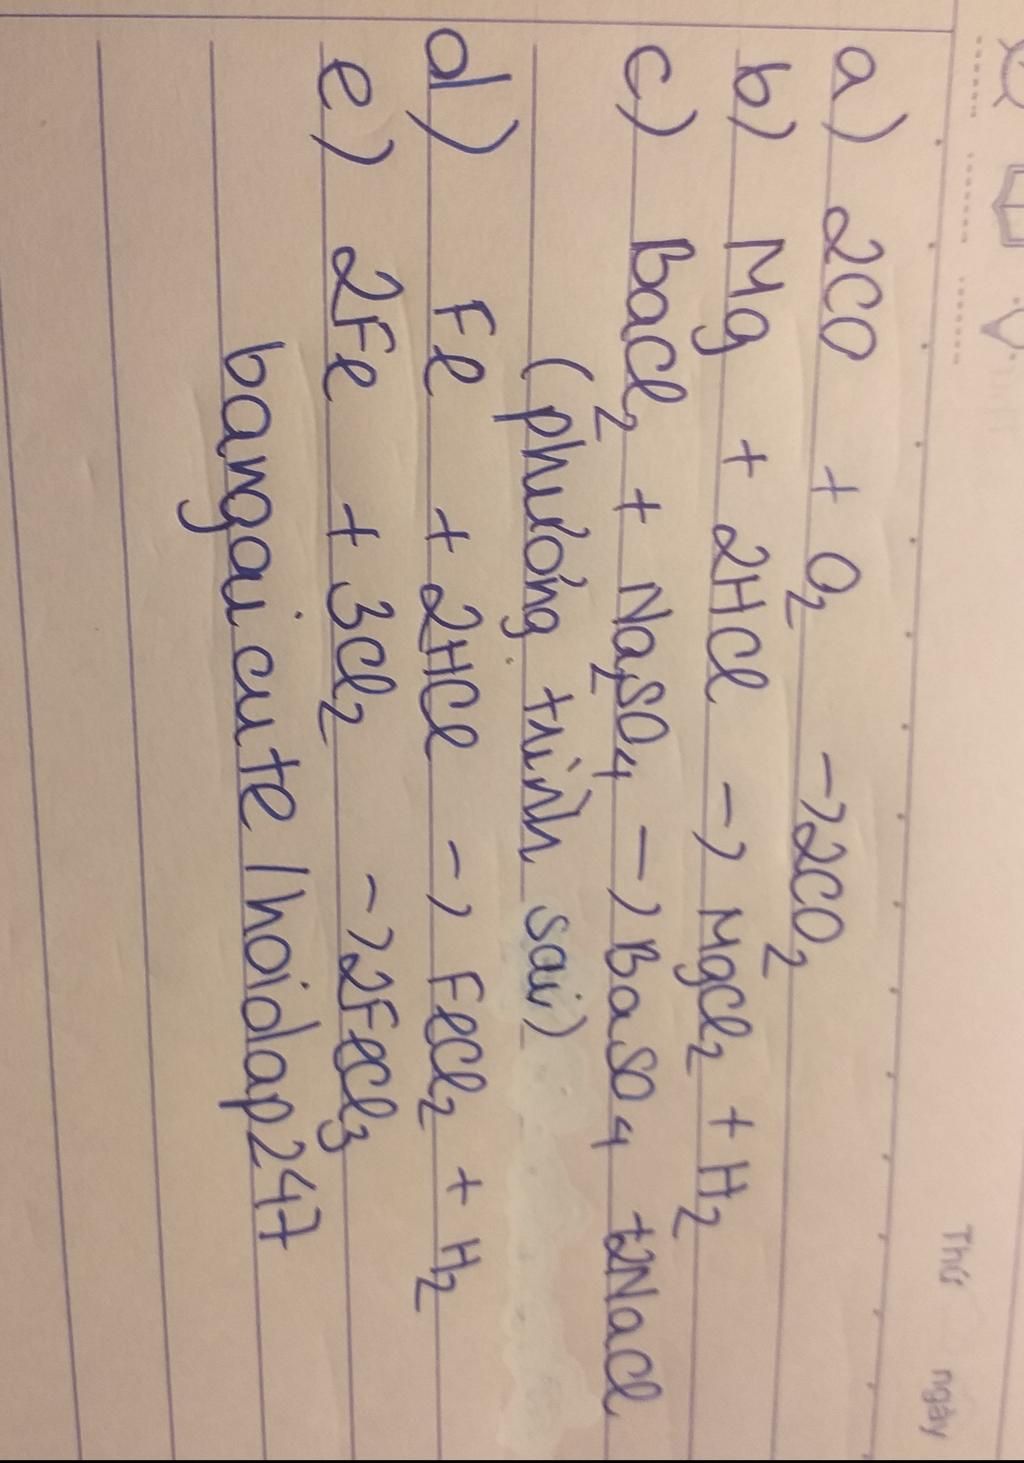 Thứ ngày
a) 2CO + O₂ → 2CO₂
b) Mg + 2HCl → MgCl₂ + H₂
c) BaCl₂ + Na₂SO₄ → BaSO₄ + 2NaCl
(phương trình sai)
d) Fe + 2HCl → FeCl₂ + H₂
e) 2Fe + 3Cl₂ → 2FeCl₃
bangaicute / hoidap247